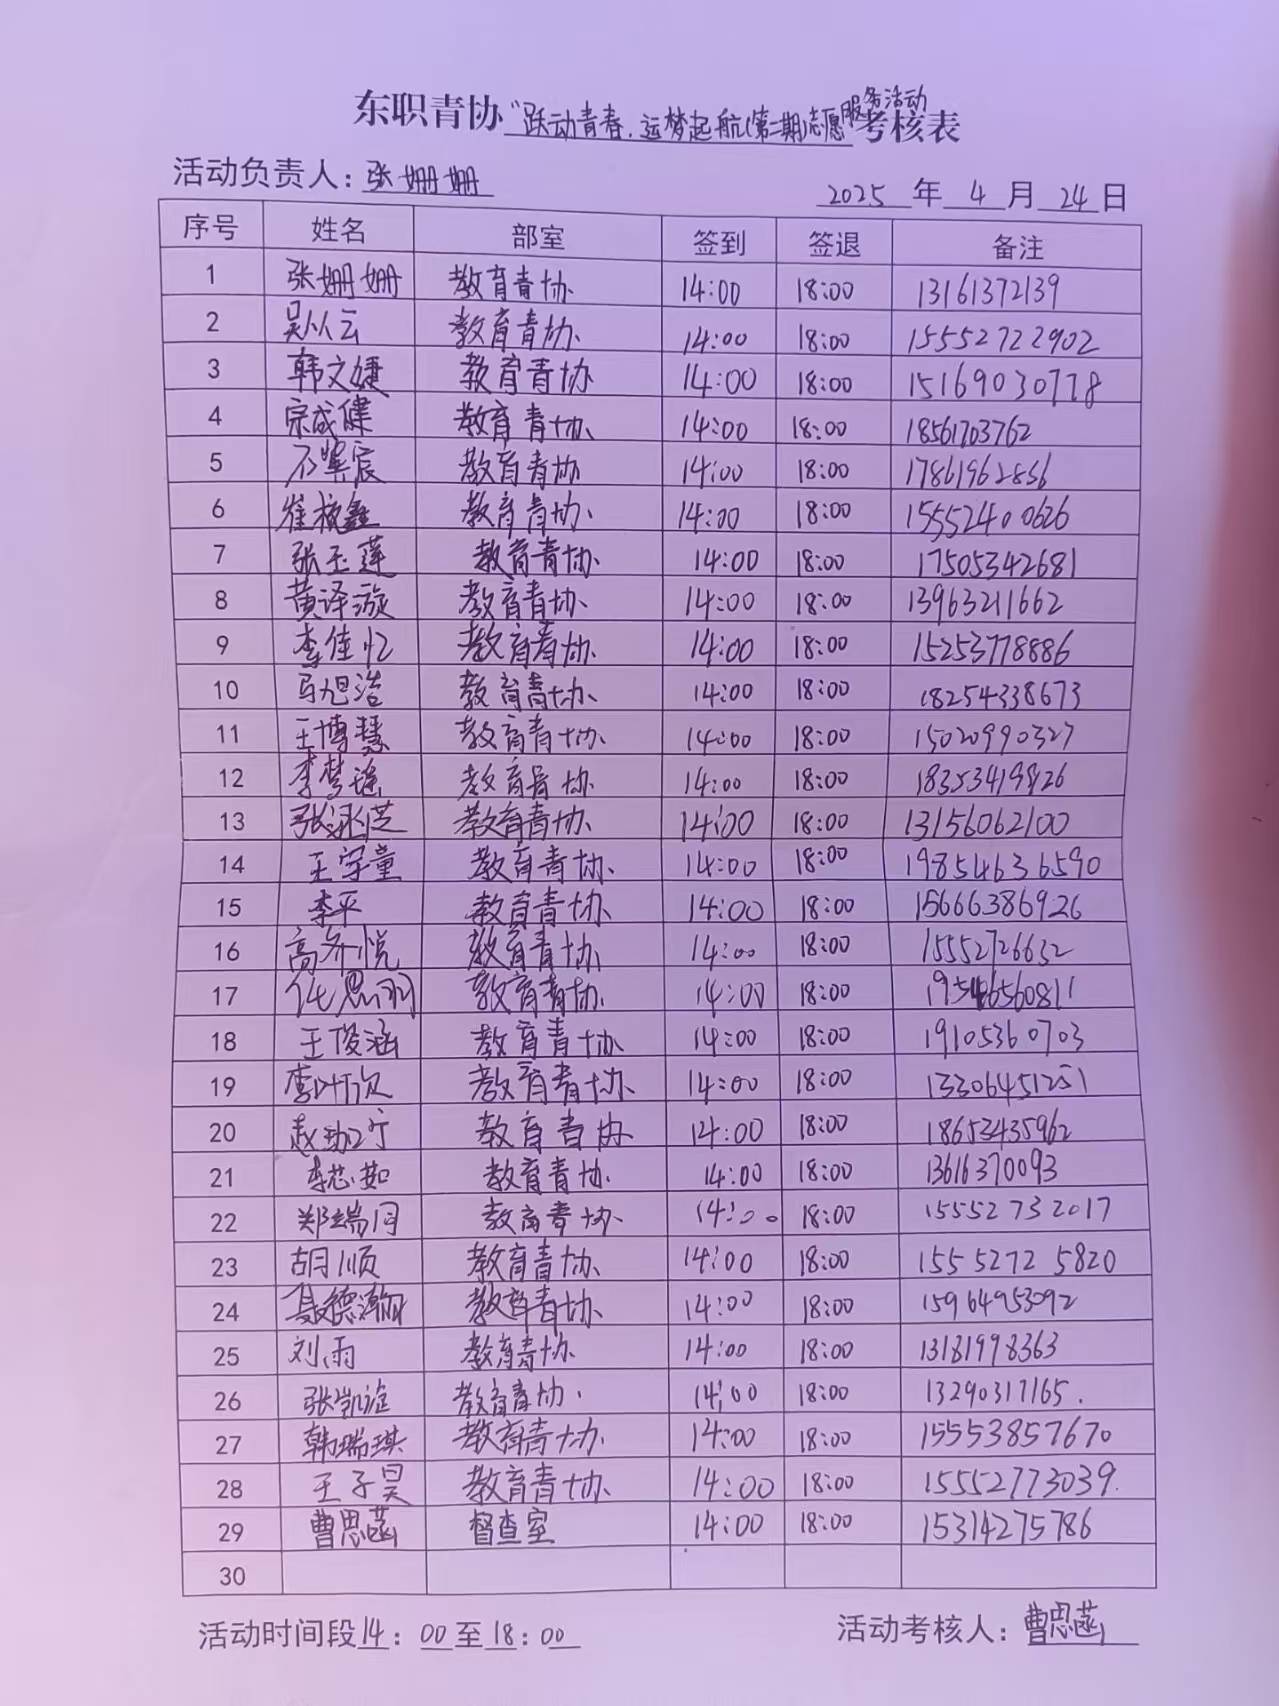 东职青协“跃动青春,运梦起航(第二期)志愿服务活动考核表
活动负责人：张姗姗 2025 年 4 月 24 日
序号 姓名 部室 签到 签退 备注
1 张姗姗 教育青协 14:00 18:00 13161372139
2 吴从云 教育青协 14:00 18:00 15552722902
3 韩文婕 教育青协 14:00 18:00 15169030778
4 宗成健 教育青协 14:00 18:00 18561703762
5 教育青协 14:00 18:00 17861962856
6 教育青协 14:00 18:00 15552400626
7 张玉莲 教育青协 14:00 18:00 17505342681
8 黄泽漩 教育青协 14:00 18:00 13963211662
9 李佳忆 教育青协 14:00 18:00 15253778886
10 马旭浩 教育青协 14:00 18:00 18254338673
11 王博慧 教育青协 14:00 18:00 15020990327
12 李梦瑶 教育青协 14:00 18:00
13 教育青协 14:00 18:00 13156062100
14 王宇童 教育青协 14:00 18:00 19854636590
15 李平 教育青协 14:00 18:00 15666386926
16 教育青协 14:00 18:00 15552726632
17 任思羽 教育青协 14:00 18:00
18 王俊涵 教育青协 14:00 18:00 19105360703
19 教育青协 14:00 18:00 13306451251
20 教育青协 14:00 18:00 18653435962
21 李芯茹 教育青协 14:00 18:00 13616370093
22 郑端月 教育青协 14:00 18:00 15552732017
23 胡顺 教育青协 14:00 18:00 155 5272 5820
24 聂德瀚 教育青协 14:00 18:00 15964953092
25 刘雨 教育青协 14:00 18:00 13181998363
26 张凯旋 教育青协. 14:00 18:00 13290317165.
27 韩瑞琪 教育青协 14:00 18:00 15553857670
28 王子昊 教育青协 14:00 18:00 15552773039.
29 曹思菡 督查室 14:00 18:00 15314275786
30
活动时间段14：00至18：00 活动考核人：曹思菡